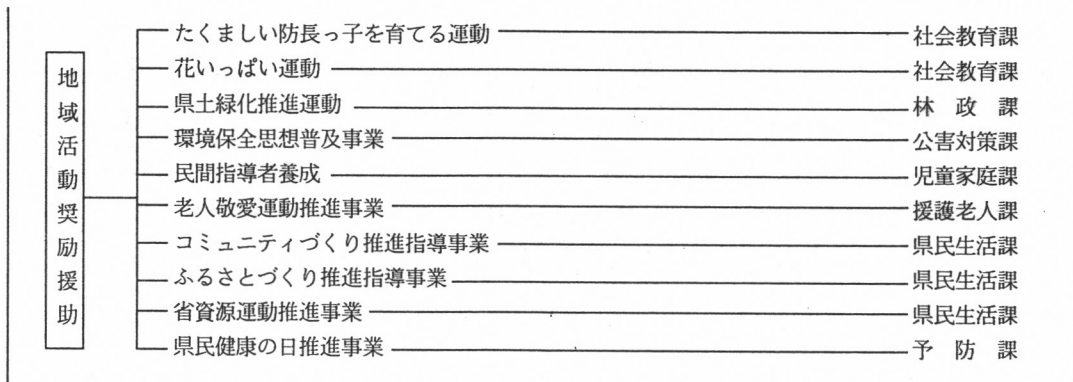 地域活動奨励援助
たくましい防長っ子を育てる運動 社会教育課
花いっぱい運動 社会教育課
県土緑化推進運動 林政課
環境保全思想普及事業 公害対策課
民間指導者養成 児童家庭課
老人敬愛運動推進事業 援護老人課
コミュニティづくり推進指導事業 県民生活課
ふるさとづくり推進指導事業 県民生活課
省資源運動推進事業 県民生活課
県民健康の日推進事業 予防課